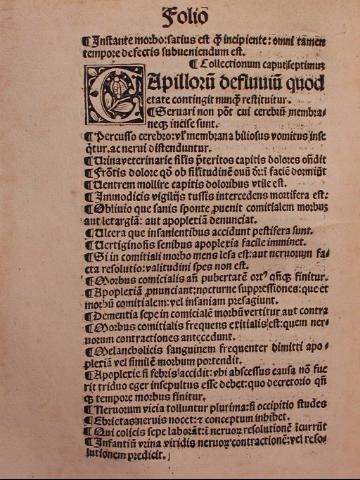 Folio
¶Instante morbo: satius est q̃ incipiente: omni tamen
tempore defectis subueniendum est.
¶Collectionum caput septimuʒ
CApillorũ defluuiũ quod
etate contingit nunq̃ restituitur.
¶Seruari non põt cui cerebrũ membra-
neqʒ incise sunt.
¶Percusso cerebro: vl' membrana biliosus vomitus inse
q̃tur. ac nerui distenduntur.
¶Urina veterinarie filis p̃teritos capitis dolores oñdit
¶Frõtis dolore
¶Uentrem mollire capitis doloribus vtile est.
¶Immodicis vigilijs tussis intercedens mortifera est:
¶Obliuio que sanis sponte ꝓuenit comitialem morbũ
aut letargiã: aut apoplexiã denunciat.
¶Ulcera que insanientibus accidunt pestifera sunt.
¶Uertiginosis senibus apoplexia facile imminet.
¶Si in comitiali morbo mens lesa est: aut neruorum fa-
cta resolutio: valitudini spes non est.
¶Morbus comicialis añ pubertatẽ ortꝰ q̃nqʒ finitur.
¶Apoplexiã ꝓnunciant: nocturne suppressiones: que et
morbũ comitialem: vel insaniam presagiunt.
¶Dementia sepe in comicialẽ morbũ vertitur. aut contra
¶Morbus comitialis frequens exitialis est: quem ner-
uorum contractiones antecedunt.
¶Melancholicis sanguinem frequenter dimitti apo-
plexiã vel similẽ morbum portendit.
¶Apoplexie si febris accidit: vbi abscessus causa nõ fue
rit triduo eger insepultus esse debet: quo decretorio q̃n
qʒ tempore morbus finitur.
¶Neruorum vicia tolluntur plurima: si occipitio studes
¶Ebrietas neruis nocet: ⁊ conceptum inhibet.
¶Qui colicis sepe laborãt: ĩ neruoʀ resolutionẽ ĩcurrũt
¶Infantiũ vrina viridis neruoʀ contractionẽ: vel reso-
lutionem predicit.